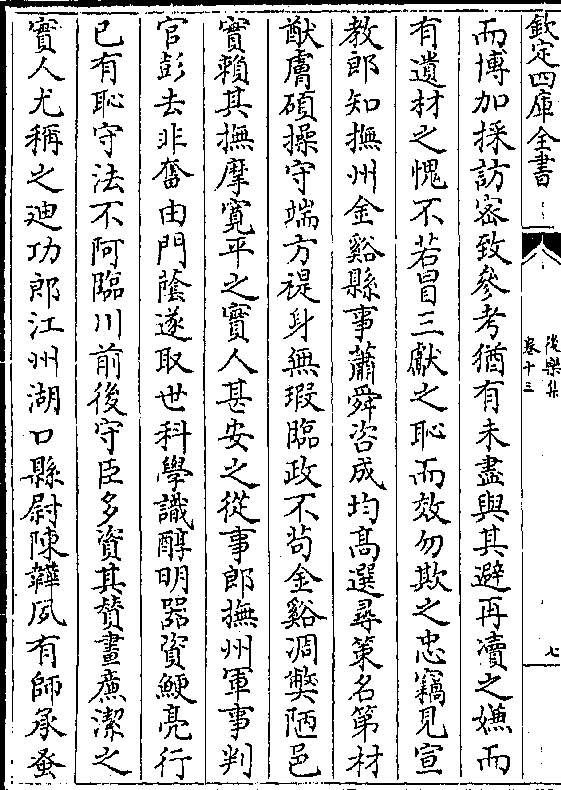 欽定四庫全書
後樂集
卷十三
七
而博加採訪密致參考猶有未盡與其避再瀆之嫌而
有遺材之愧不若冒三獻之恥而效勿欺之忠竊見宣
教郎知撫州金谿縣事蕭舜咨成均髙選尋策名第材
猷膚碩操守端方禔身無瑕臨政不茍金谿凋弊陋邑
實賴其撫摩寛平之實人甚安之從事郎撫州軍事判
官彭去非奮由門䕃遂取世科學識醇明器資鯁亮行
已有恥守法不阿臨川前後守臣多資其賛畫亷潔之
實人尤稱之廸功郎江州湖口縣尉陳韡夙有師承蚤